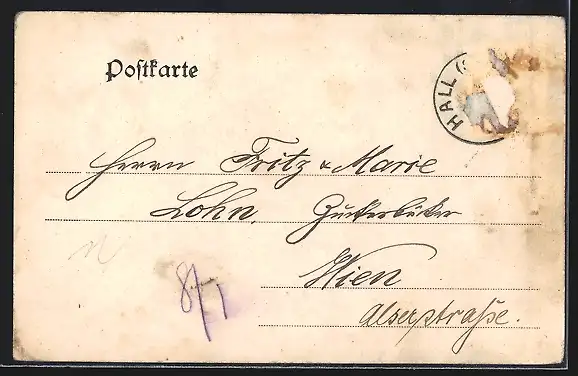 Postkarte
HALL (
Herrn Fritz & Marie
Lohn, Zuckerbäcker
Wien
Alserstraße.
8/1